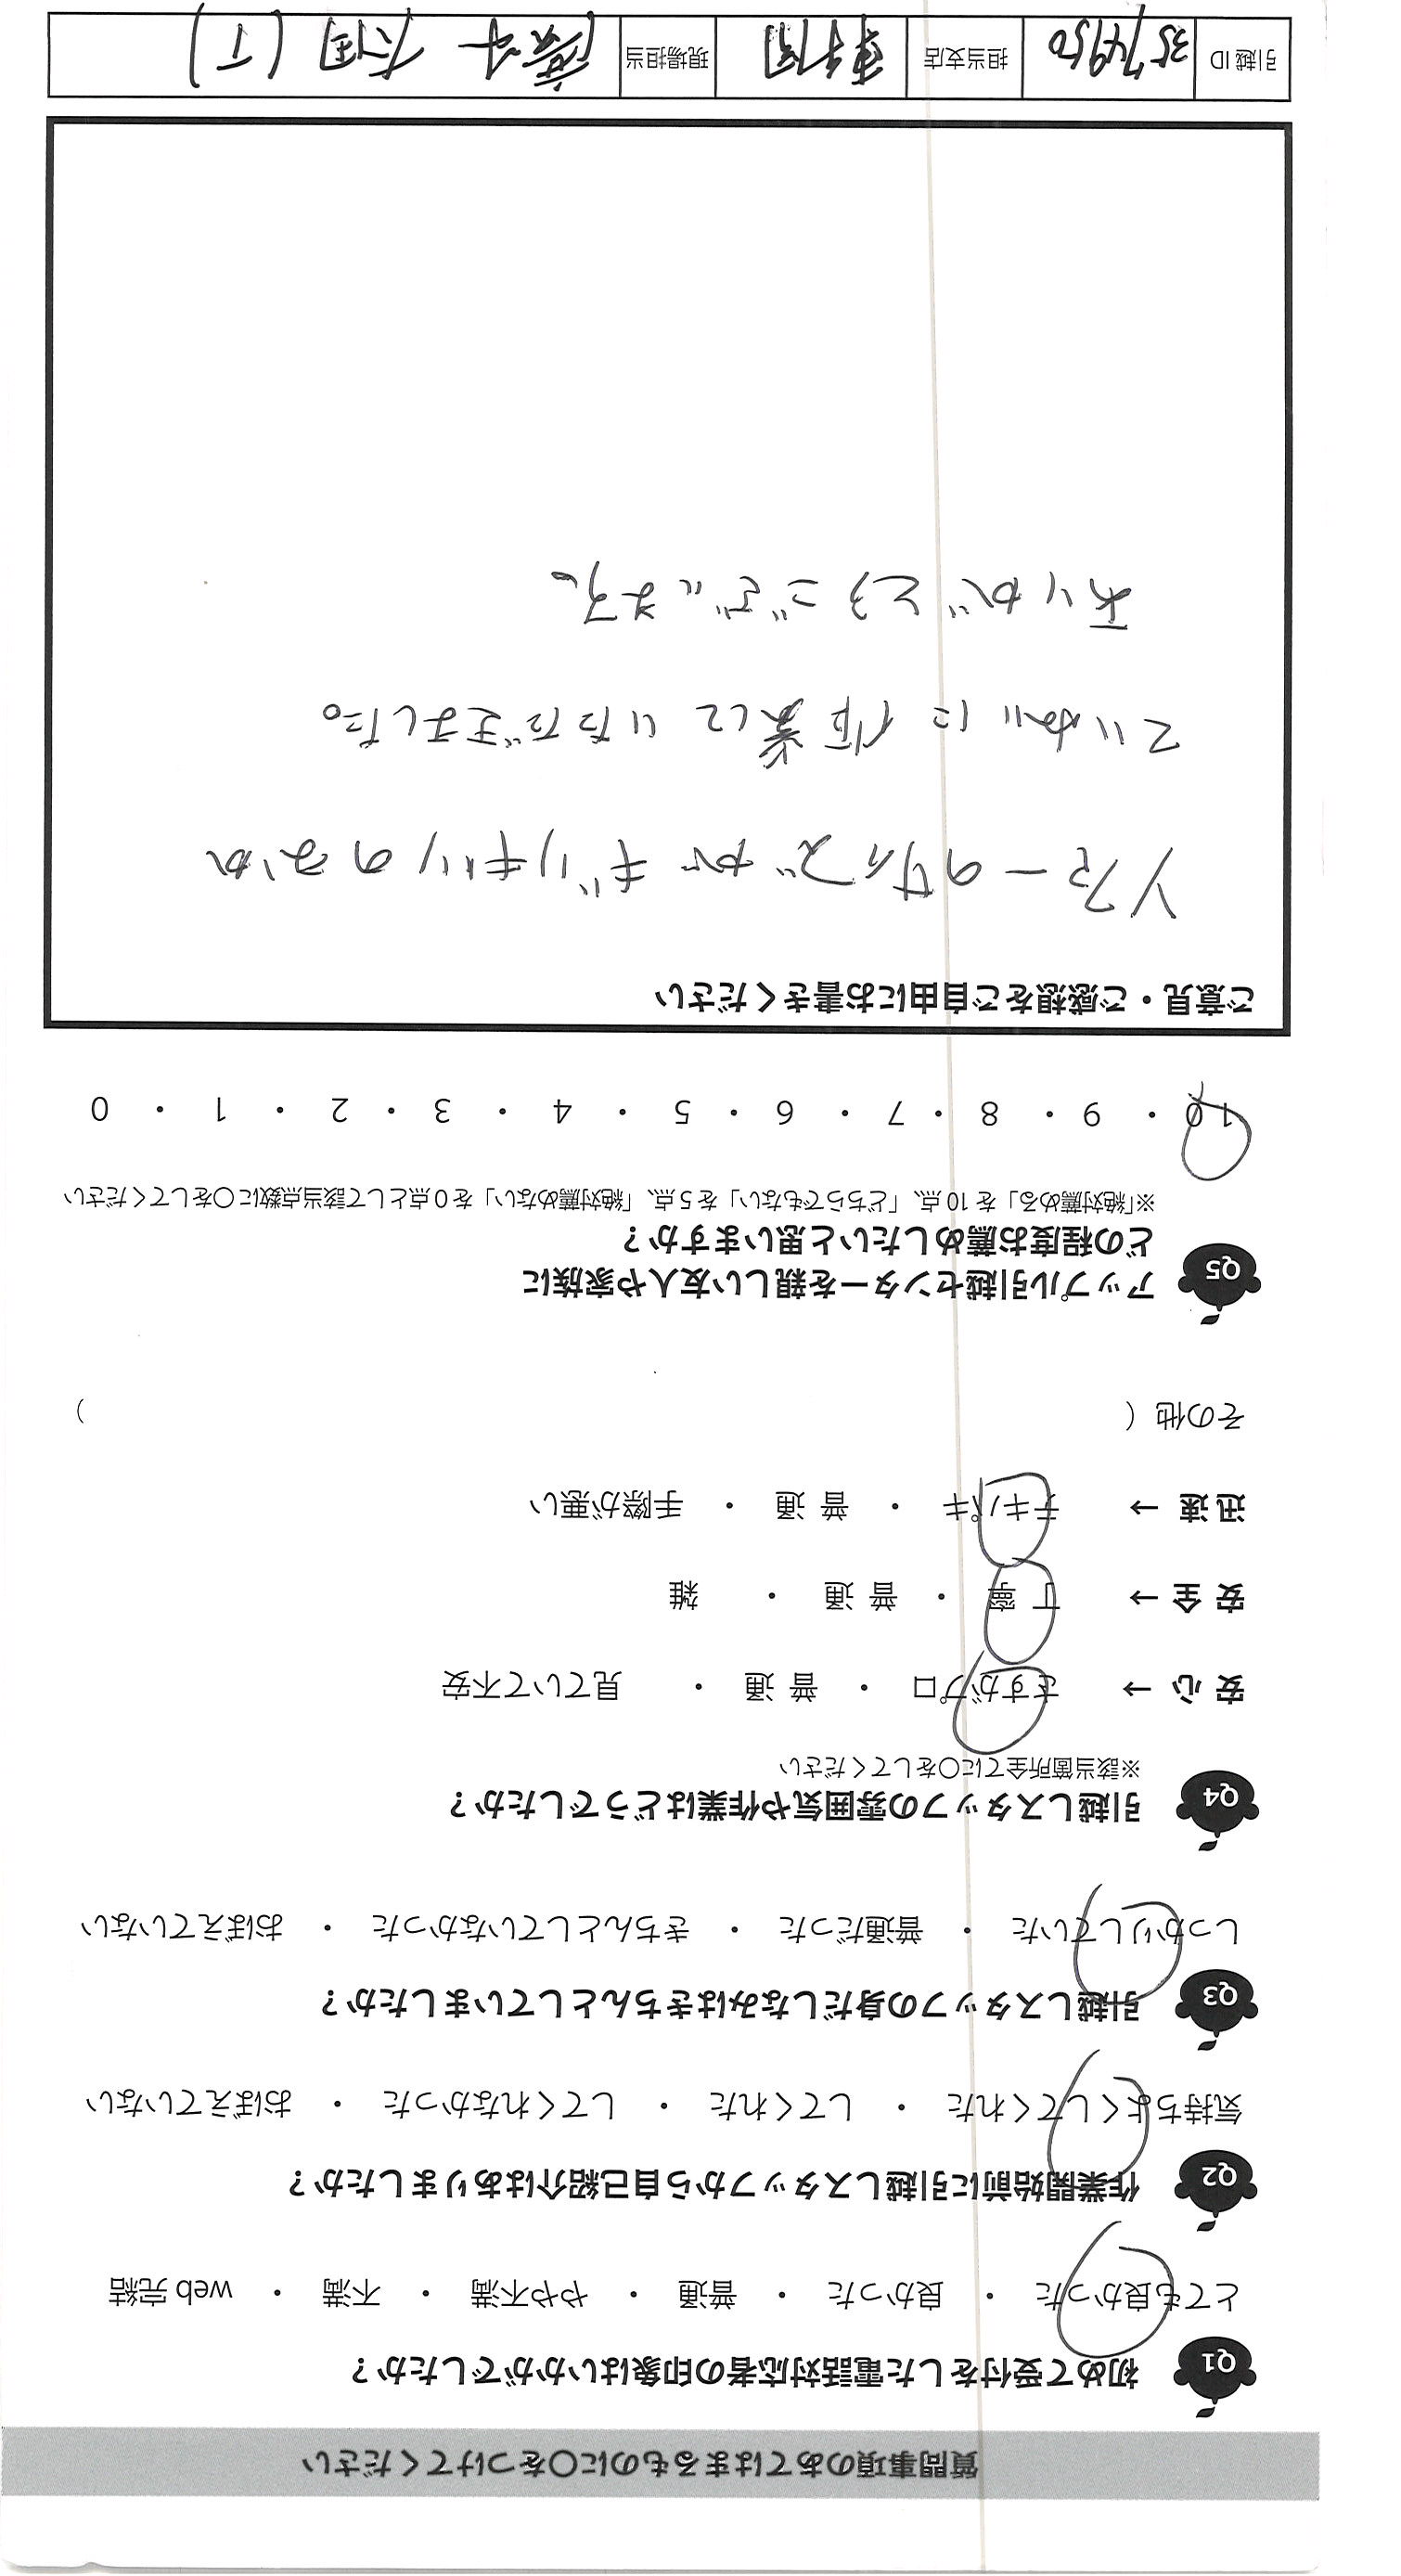 質問事項のあてはまるものに〇をつけてください
Q1 初めて受付をした電話対応者の印象はいかがでしたか？
とても良かった ・ 良かった ・ 普通 ・ やや不満 ・ 不満 ・ web 完結
Q2 作業開始前に引越しスタッフから自己紹介はありましたか？
気持ちよくしてくれた ・ してくれた ・ してくれなかった ・ おぼえていない
Q3 引越しスタッフの身だしなみはきちんとしていましたか？
しっかりしていた ・ 普通だった ・ きちんとしていなかった ・ おぼえていない
Q4 引越しスタッフの雰囲気や作業はどうでしたか？
※該当箇所全てに〇をしてください
安 心 → さすがプロ ・ 普 通 ・ 見ていて不安
安 全 → 丁 寧 ・ 普 通 ・ 雑
迅 速 → テキパキ ・ 普 通 ・ 手際が悪い
その他（ ）
Q5 アップル引越センターを親しい友人や家族に
どの程度お薦めしたいと思いますか？
※「絶対薦める」を 10 点、「どちらでもない」を 5 点、「絶対薦めない」を 0 点として該当点数に〇をしてください
10 ・ 9 ・ 8 ・ 7 ・ 6 ・ 5 ・ 4 ・ 3 ・ 2 ・ 1 ・ 0
ご意見・ご感想をご自由にお書きください
ソファーのサイズが ギリギリのなか
ていねいに 作業して いただきました。
ありがとうございます。
引越 ID 3574950 担当支店 現場担当